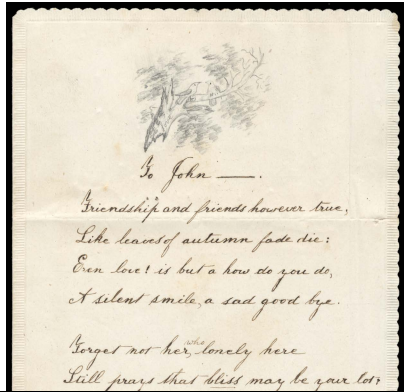 To John —.
Friendship and friends however true,
Like leaves of autumn fade die:
Even love! is but a how do you do,
A silent smile, a sad good bye.
Forget not her, who lonely here
Still prays that bliss may be your lot;